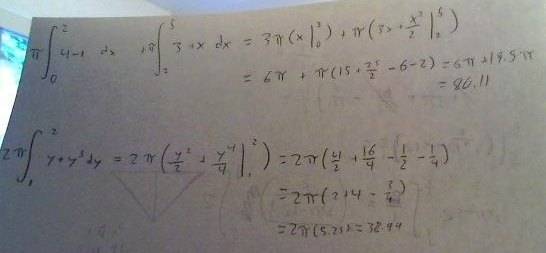 π∫₀² 4-1 dx + π∫₂⁵ 3+x dx = 3π(x|₀²) + π(3x+x²/2|₂⁵)
= 6π + π(15+25/2-6-2) = 6π+19.5π
= 80.11
2π∫₁² y+y³dy = 2π(y²/2+y⁴/4|₁²) = 2π(4/2+16/4-1/2-1/4)
= 2π(2+4-3/4)
= 2π(5.25) = 38.99